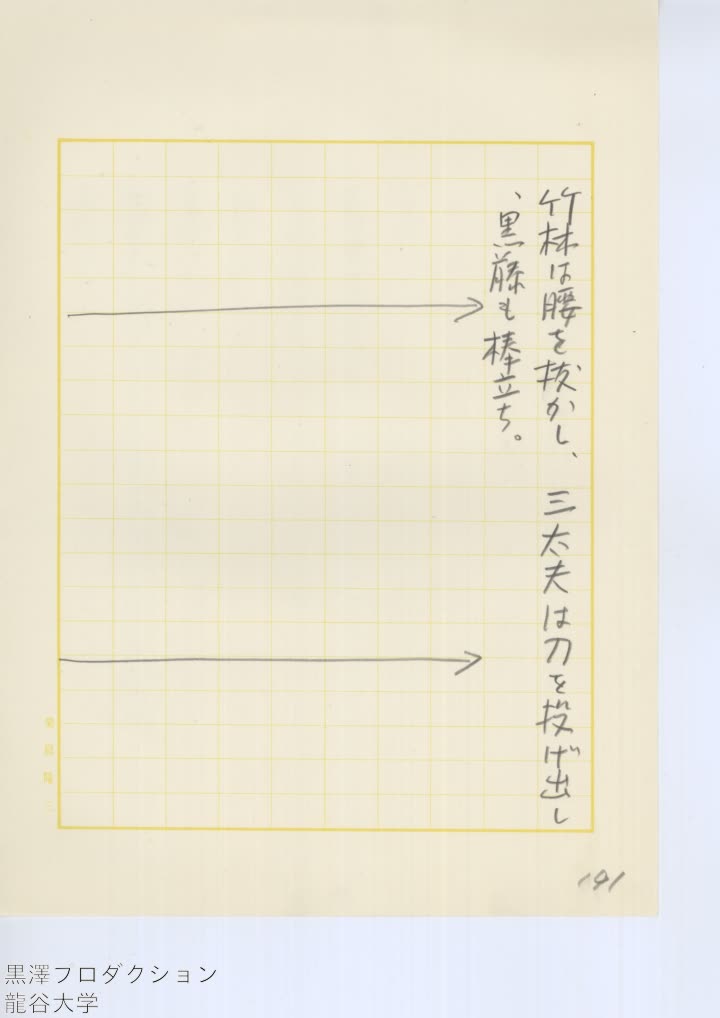 竹林は腰を抜かし、三太夫は刀を投げ出し
、黒藤も棒立ち。
191
黒澤プロダクション
龍谷大学